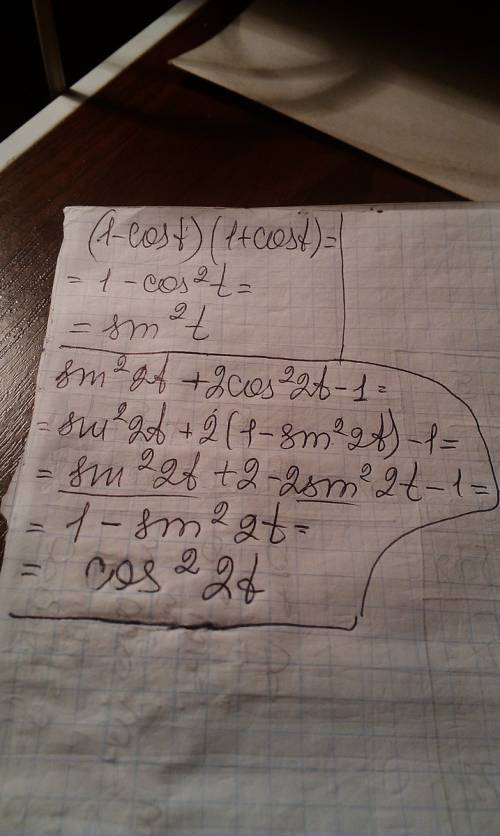 (1-cost)(1+cost)=
= 1 - cos²t =
= sin²t
sin²2t + 2cos²2t - 1 =
= sin²2t + 2(1 - sin²2t) - 1 =
= sin²2t + 2 - 2sin²2t - 1 =
= 1 - sin²2t =
= cos²2t